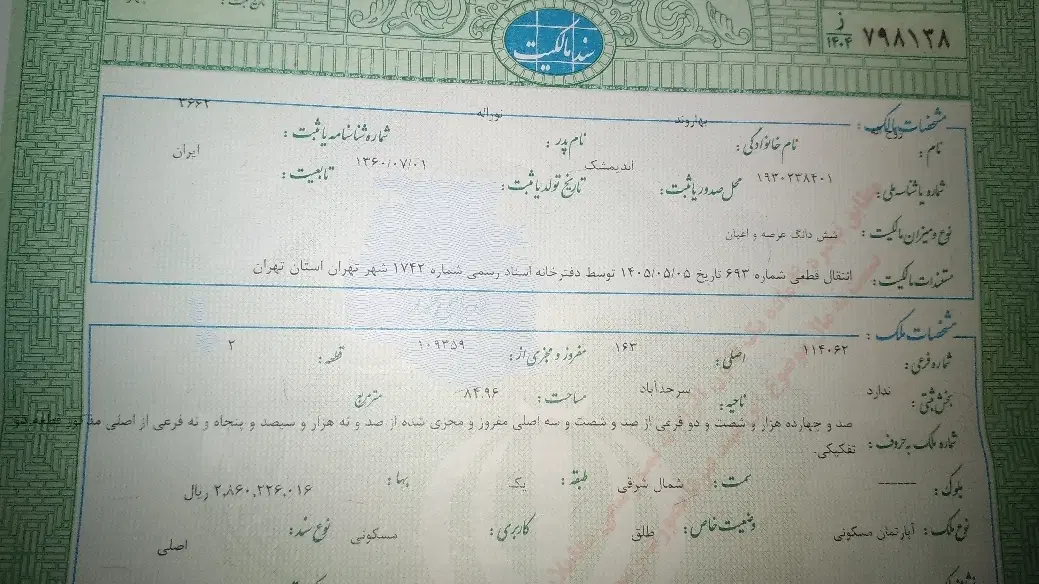 سند مالکیت
ز
۱۴۰۴ ۷۹۸۱۳۸
مشخصات مالک:
نام: نام خانوادگی: بهاروند نام پدر: نوراله شماره شناسنامه یا ثبت: ۳۶۶۲
شماره یا شناسه ملی: ۱۹۳۰۲۳۸۴۰۱ محل صدور یا ثبت: اندیمشک تاریخ تولد یا ثبت: ۱۳۶۰/۰۷/۰۱ تابعیت: ایران
نوع و میزان مالکیت: شش دانگ عرصه و اعیان
مستندات مالکیت: انتقال قطعی شماره ۶۹۳ تاریخ ۱۴۰۵/۰۵/۰۵ توسط دفترخانه اسناد رسمی شماره ۱۷۴۲ شهر تهران استان تهران
مشخصات ملک:
شماره فرعی: ۱۱۴۰۶۲ اصلی: ۱۶۳ مفروز و مجزی از: ۱۰۹۳۵۹ قطعه: ۲
بخش ثبتی: ندارد ناحیه: سرحدآباد مساحت: ۸۴.۹۶ مترمربع
شماره ملک به حروف: صد و چهارده هزار و شصت و دو فرعی از صد و شصت و سه اصلی مفروز و مجزی شده از صد و نه هزار و سیصد و پنجاه و نه فرعی از اصلی مذکور قطعه دو
تفکیکی.
بلوک: ------ سمت: شمال شرقی طبقه: یک بها: ۲,۸۶۰,۲۲۶,۰۱۶ ریال
نوع ملک: آپارتمان مسکونی وضعیت خاص: طلق کاربری: مسکونی نوع سند: اصلی